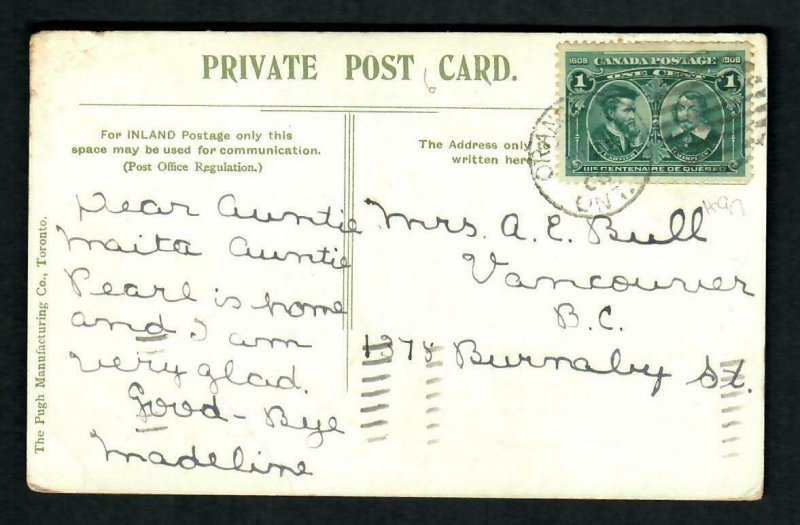 PRIVATE POST CARD.
1608 CANADA POSTAGE 1908
1 ONE CENT 1
CARTIER CHAMPLAIN
IIIe CENTENAIRE DE QUÉBEC
ORAN
ONT
For INLAND Postage only this
space may be used for communication.
(Post Office Regulation.)
The Address only
written here
Dear Auntie
Maita Auntie
Pearl is home
and I am
very glad.
Good-Bye
Madeline
Mrs. A. E. Bull
Vancouver
B.C.
1375 Burnaby St.
The Pugh Manufacturing Co., Toronto.